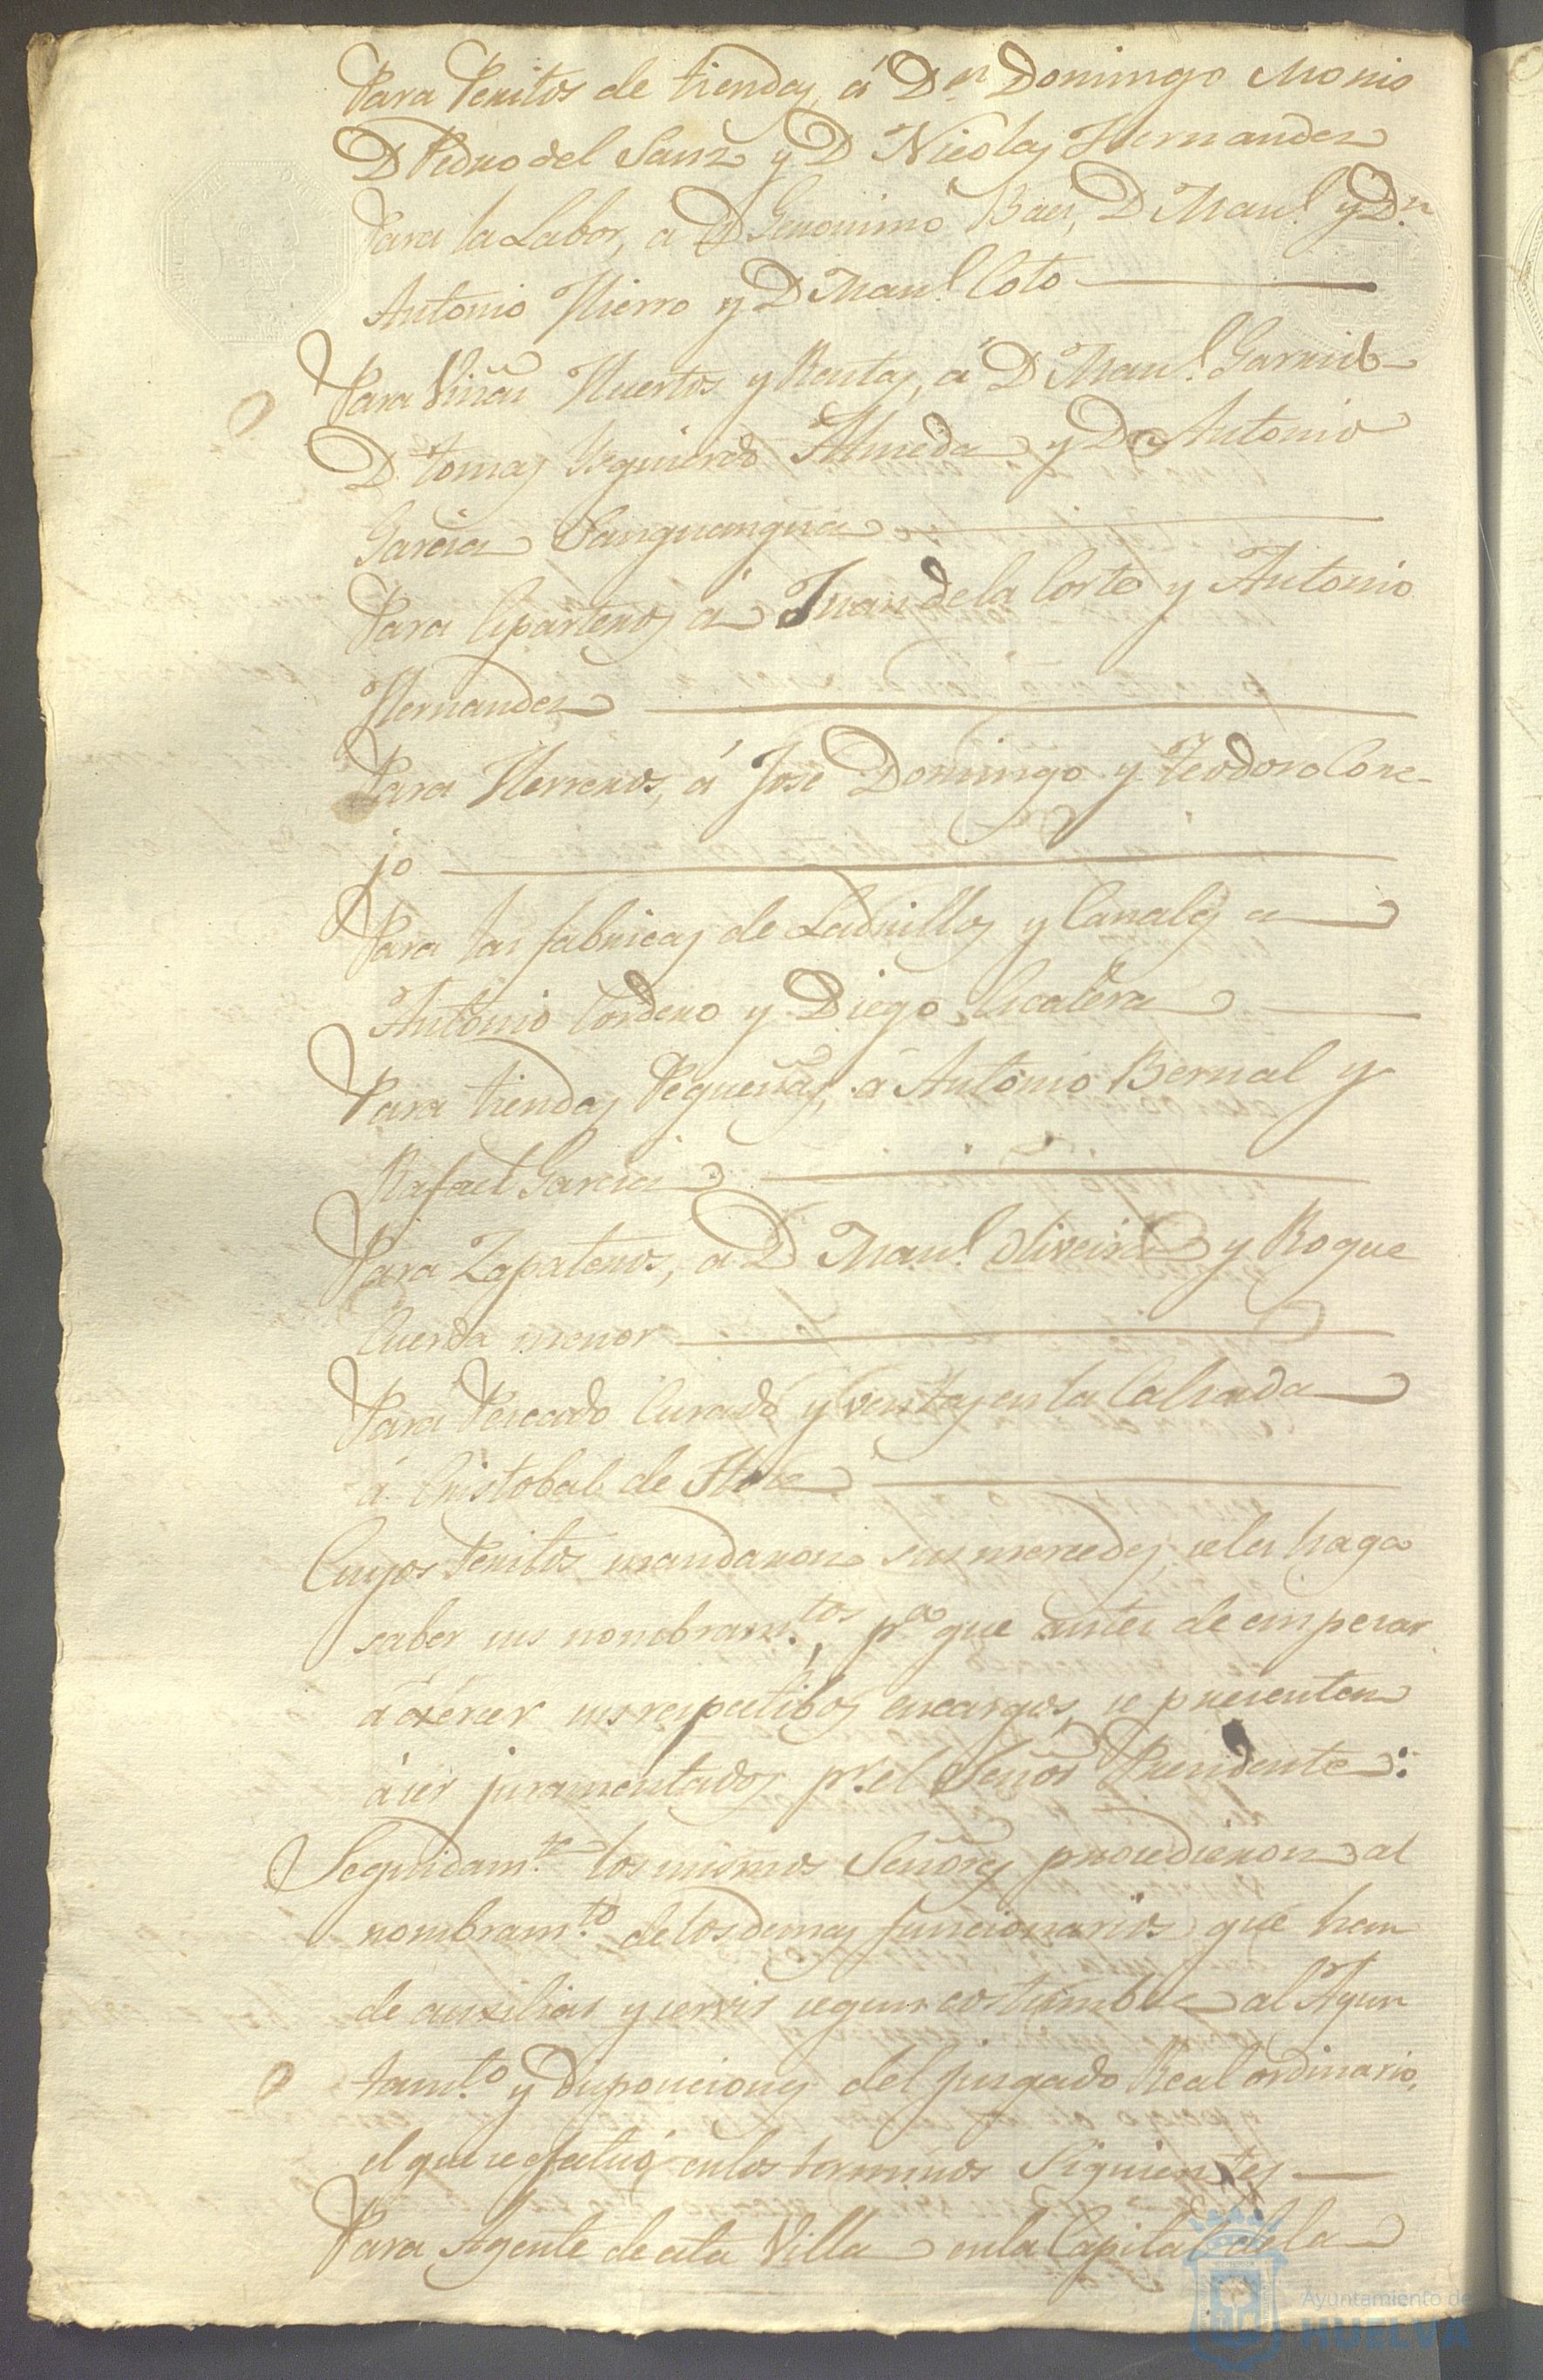 Para Peritos de tiendas, á Dn Domingo Monis
D Pedro del Sanz y D Nicolas Hernandez
Para la Labor, a D Geronimo Baes, D Manl. y Dn.
Antonio Hierro y D Manl. Coto
Para Viñas Huertos y Rentas, á D Manl. Garrido
D. tomas Ysquierdo Almeda y Dn Antonio
Garcia Sanguangua
Para Espartero, á Juan de la Corte y Antonio
Hernandez
Para Herreros, á Jose Domingo y Teodoro Cone-
jo
Para las fabricas de Ladrillos y Canales a
Antonio Cordero y Diego Escalera
Para tiendas Pequeñas, á Antonio Bernal y
Rafael Garcia
Para Zapateros, a D Manl. Oliveira y Roque
Cuerda menor
Para Pescado Curado y ventas en la Calzada
á Cristobal de
Cuyos Peritos mandaron sus mercedes, se les haga
saber sus nombram.tos, pa que antes de empesar
á exércer sus respectibos encargos, se presenten
á ser juramentados pr. el Señor Presidente:
Seguidam.te los mismos Señores procedieron al
nombram.to de los demas funcionarios que han
de auxiliar y servir segun costumbre al Ayun
tam.to y disposiciones del jusgado Real ordinario,
el que se efectuó en los terminos Siguientes
Para Agente de esta Villa en la Capital de la
Ayuntamiento de
HUELVA